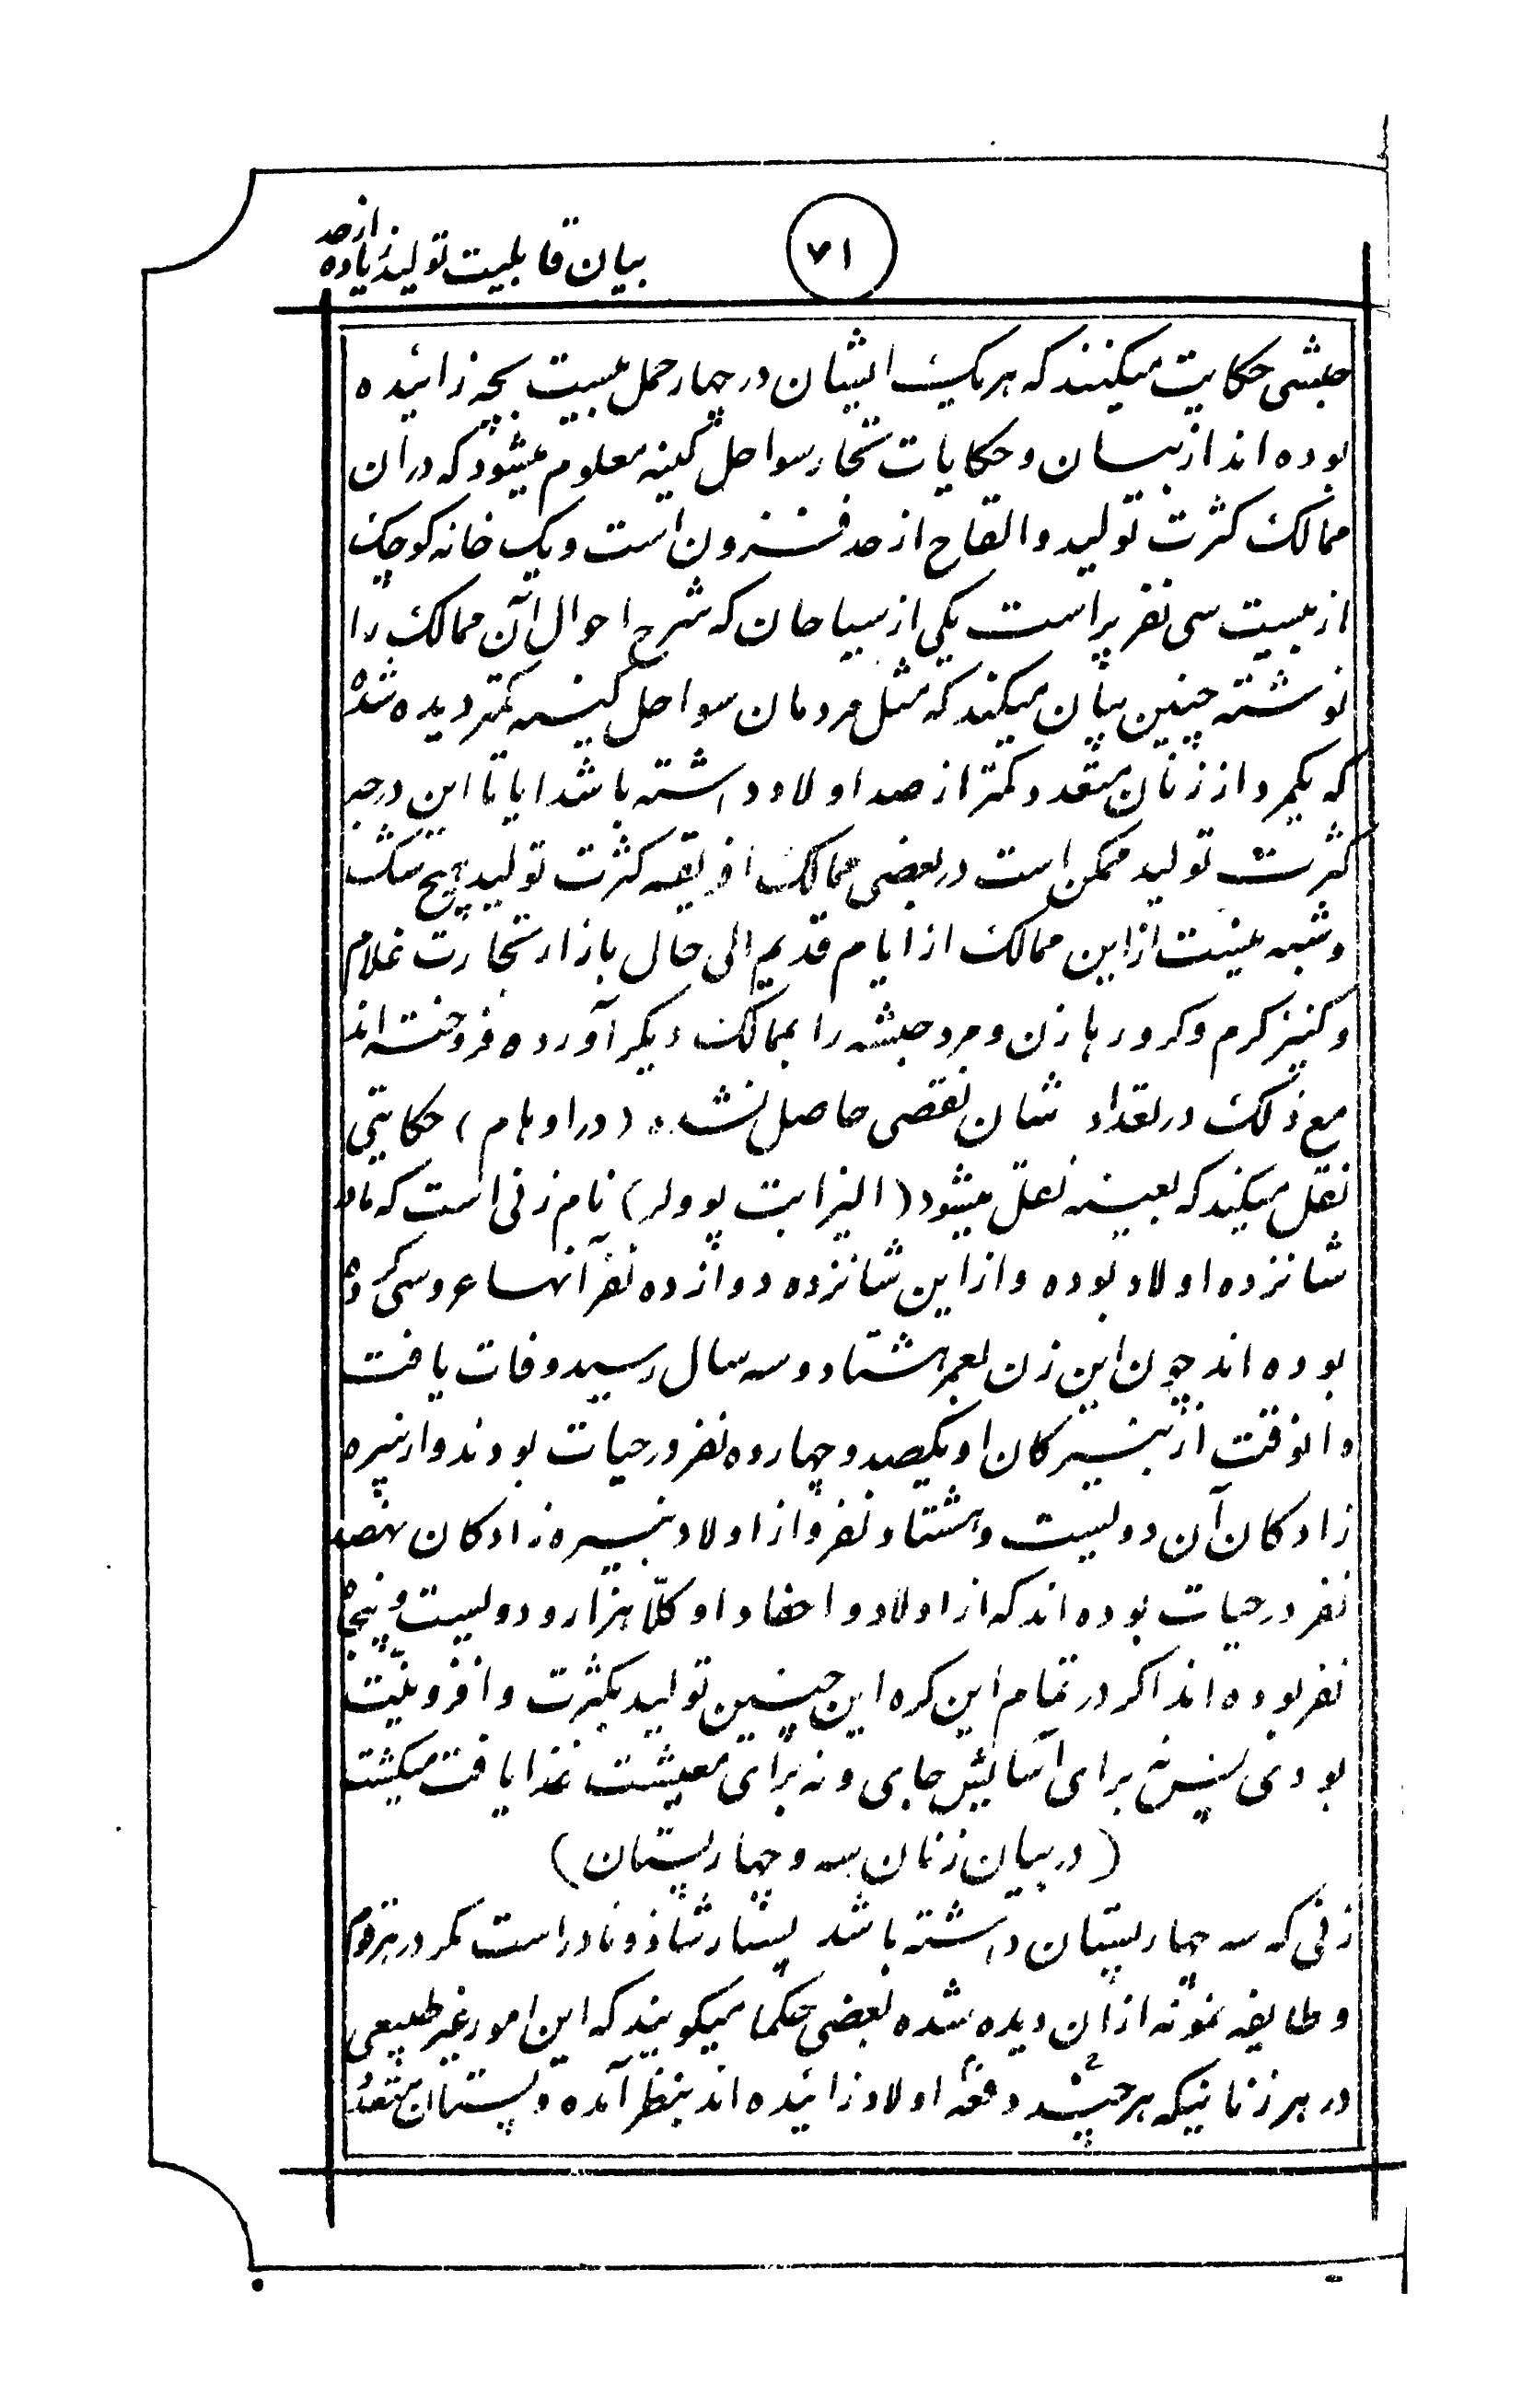 ۷۱
بیان قابلیت تولید زیاده از حد
حبشی حکایت میکنند که هریک ایشان در چهار حمل بیست بچه زائیده
بوده اند از بیان و حکایات تجار سواحل کینه معلوم میشود که در ان
ممالک کثرت تولید و القاح از حد فزون است و یک خانه کوچک
از بیست سی نفر پر است یکی از سیاحان که شرح احوال آن ممالک را
نوشته چنین بیان میکند که مثل مردمان سواحل کینه کمتر دیده شده
که یکمرد از زنان متعدد کمتر از صد اولاد داشته باشد ایا تا این درجه
کثرت تولید ممکن است در بعضی ممالک افریقه کثرت تولید هیچ شک
و شبه نیست از این ممالک از ایام قدیم الی حال بازار تجارت غلام
و کنیز کرم و کرورها زن و مرد حبشه را بممالک دیکر آورده فروخته اند
مع ذلک در تعداد شان نقصی حاصل نشده (در اوهام) حکایتی
نقل میکند که بعینه نقل میشود (الیزابت پوولر) نام زنی است که مادر
شانزده اولاد بوده و از این شانزده دوازده نفر آنها عروسی کرده
بوده اند چون این زن بعمر هشتاد و سه سال رسید وفات یافت
و انوقت از نبیرکان او یکصد و چهارده نفر در حیات بودند و از نبیره
زادکان آن دولیست و هشتاد نفر و از اولاد نبیره زادکان نهصد
نفر در حیات بوده اند که از اولاد و احفاد او کلّا هزار و دولیست و پنجاه
نفر بوده اند اکر در تمام این کره این چنین تولید بکثرت و افزونیّت
بودی پس نه برای آسایش جای و نه برای معیشت غذا یافت میکشت
(در بیان زنان سه و چهار پستان)
زنی که سه چهار پستان داشته باشد بسیار شاذ و نادر است مکر در هر قوم
و طایفه نمونه از ان دیده شده بعضی حکما میکویند که این امور غیر طبیعی
در هر زنانیکه هر چند دفعه اولاد زائیده اند بنظر آمده و پستان متعدد